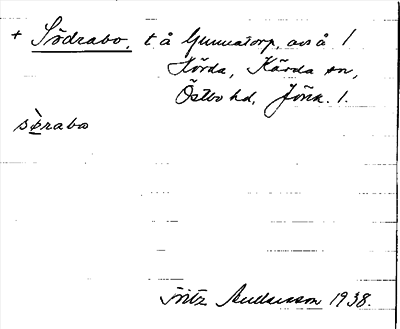 + Södrabo, t å Gunnatorp, avs å 1
Hörda, Kärda sn,
Östbo hd, Jönk. l.
sèrabo
Fritz Andersson 1938.